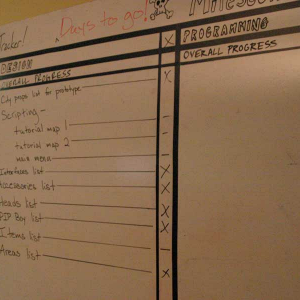 Tracker!
Days to go!
Milestone
DESIGN
X
PROGRAMMING
OVERALL PROGRESS
X
OVERALL PROGRESS
City props list for prototype
Scripting -
tutorial map 1 -
tutorial map 2 -
main menu -
Interfaces list X
Accessories list X
Heads list X
PIP Boy list X
Items list -
Areas list X